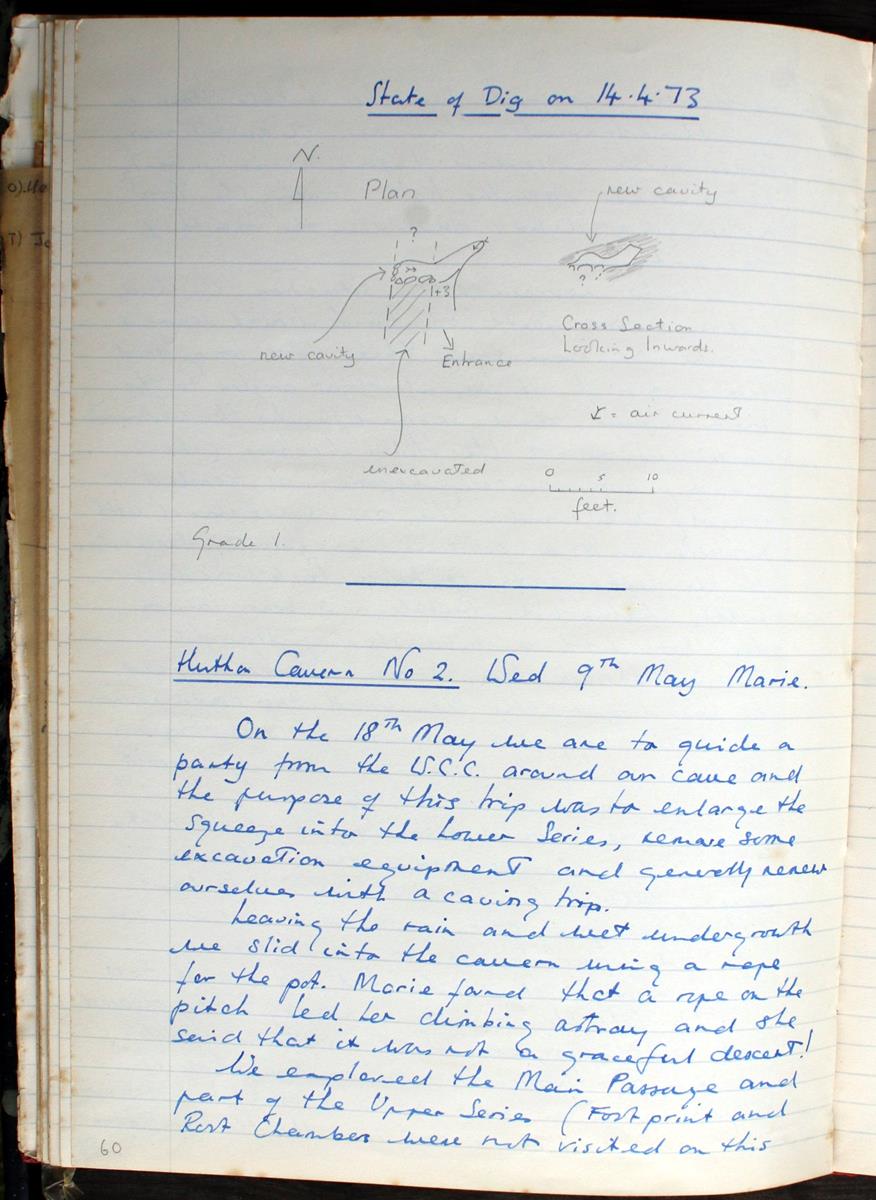 State of Dig on 14.4.73
N.
Plan
new cavity
?
1+3
? ?
Cross Section
Looking Inwards.
new cavity
Entrance
= air current
unexcavated
0 5 10
feet.
Grade 1.
Hutton Cavern No 2. Wed 9th May Marie.
On the 18th May we are to guide a
party from the W.C.C. around our cave and
the purpose of this trip was to enlarge the
squeeze into the Lower Series, remove some
excavation equipment and generally renew
ourselves with a caving trip.
Leaving the rain and wet undergrowth
we slid into the cavern using a rope
for the pot. Marie found that a rope on the
pitch led her climbing astray and she
said that it was not a graceful descent!
We explored the Main Passage and
part of the Upper Series (Footprint and
Root Chambers were not visited on this
60